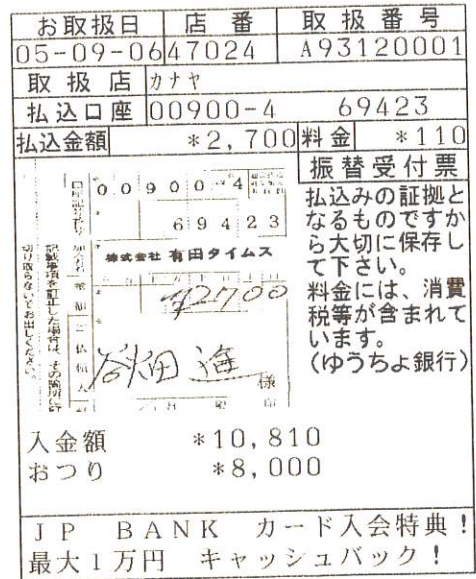 お取扱日 店番 取扱番号
05-09-06 47024 A93120001
取扱店 カナヤ
払込口座 00900-4 69423
払込金額 *2,700 料金 *110
振替受付票
払込みの証拠と
なるものですか
ら大切に保存し
て下さい。
料金には、消費
税等が含まれて
います。
(ゆうちょ銀行)
00900 4
69423
株式会社 有田タイムス
¥2700
様
切り取らないでお出しください。
記載事項を訂正した場合は、その箇所に訂
入金額 *10,810
おつり *8,000
JP BANK カード入会特典!
最大1万円 キャッシュバック!